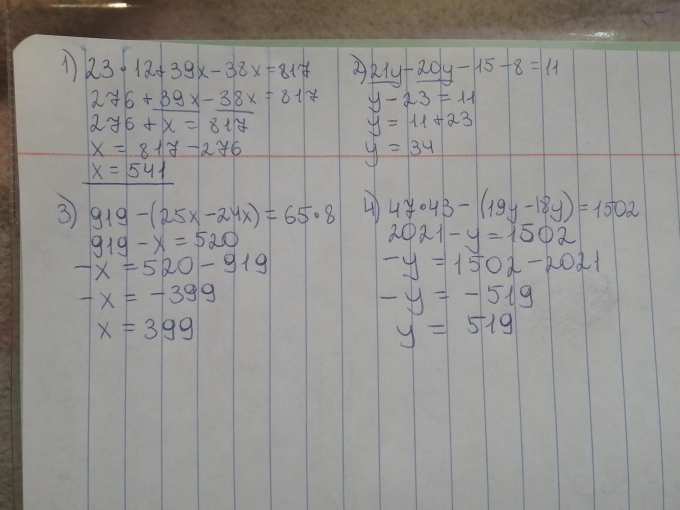 1) 23 · 12 + 39x - 38x = 817
276 + 39x - 38x = 817
276 + x = 817
x = 817 - 276
x = 541
2) 21y - 20y - 15 - 8 = 11
y - 23 = 11
y = 11 + 23
y = 34
3) 919 - (25x - 24x) = 65 · 8
919 - x = 520
-x = 520 - 919
-x = -399
x = 399
4) 47 · 43 - (19y - 18y) = 1502
2021 - y = 1502
-y = 1502 - 2021
-y = -519
y = 519